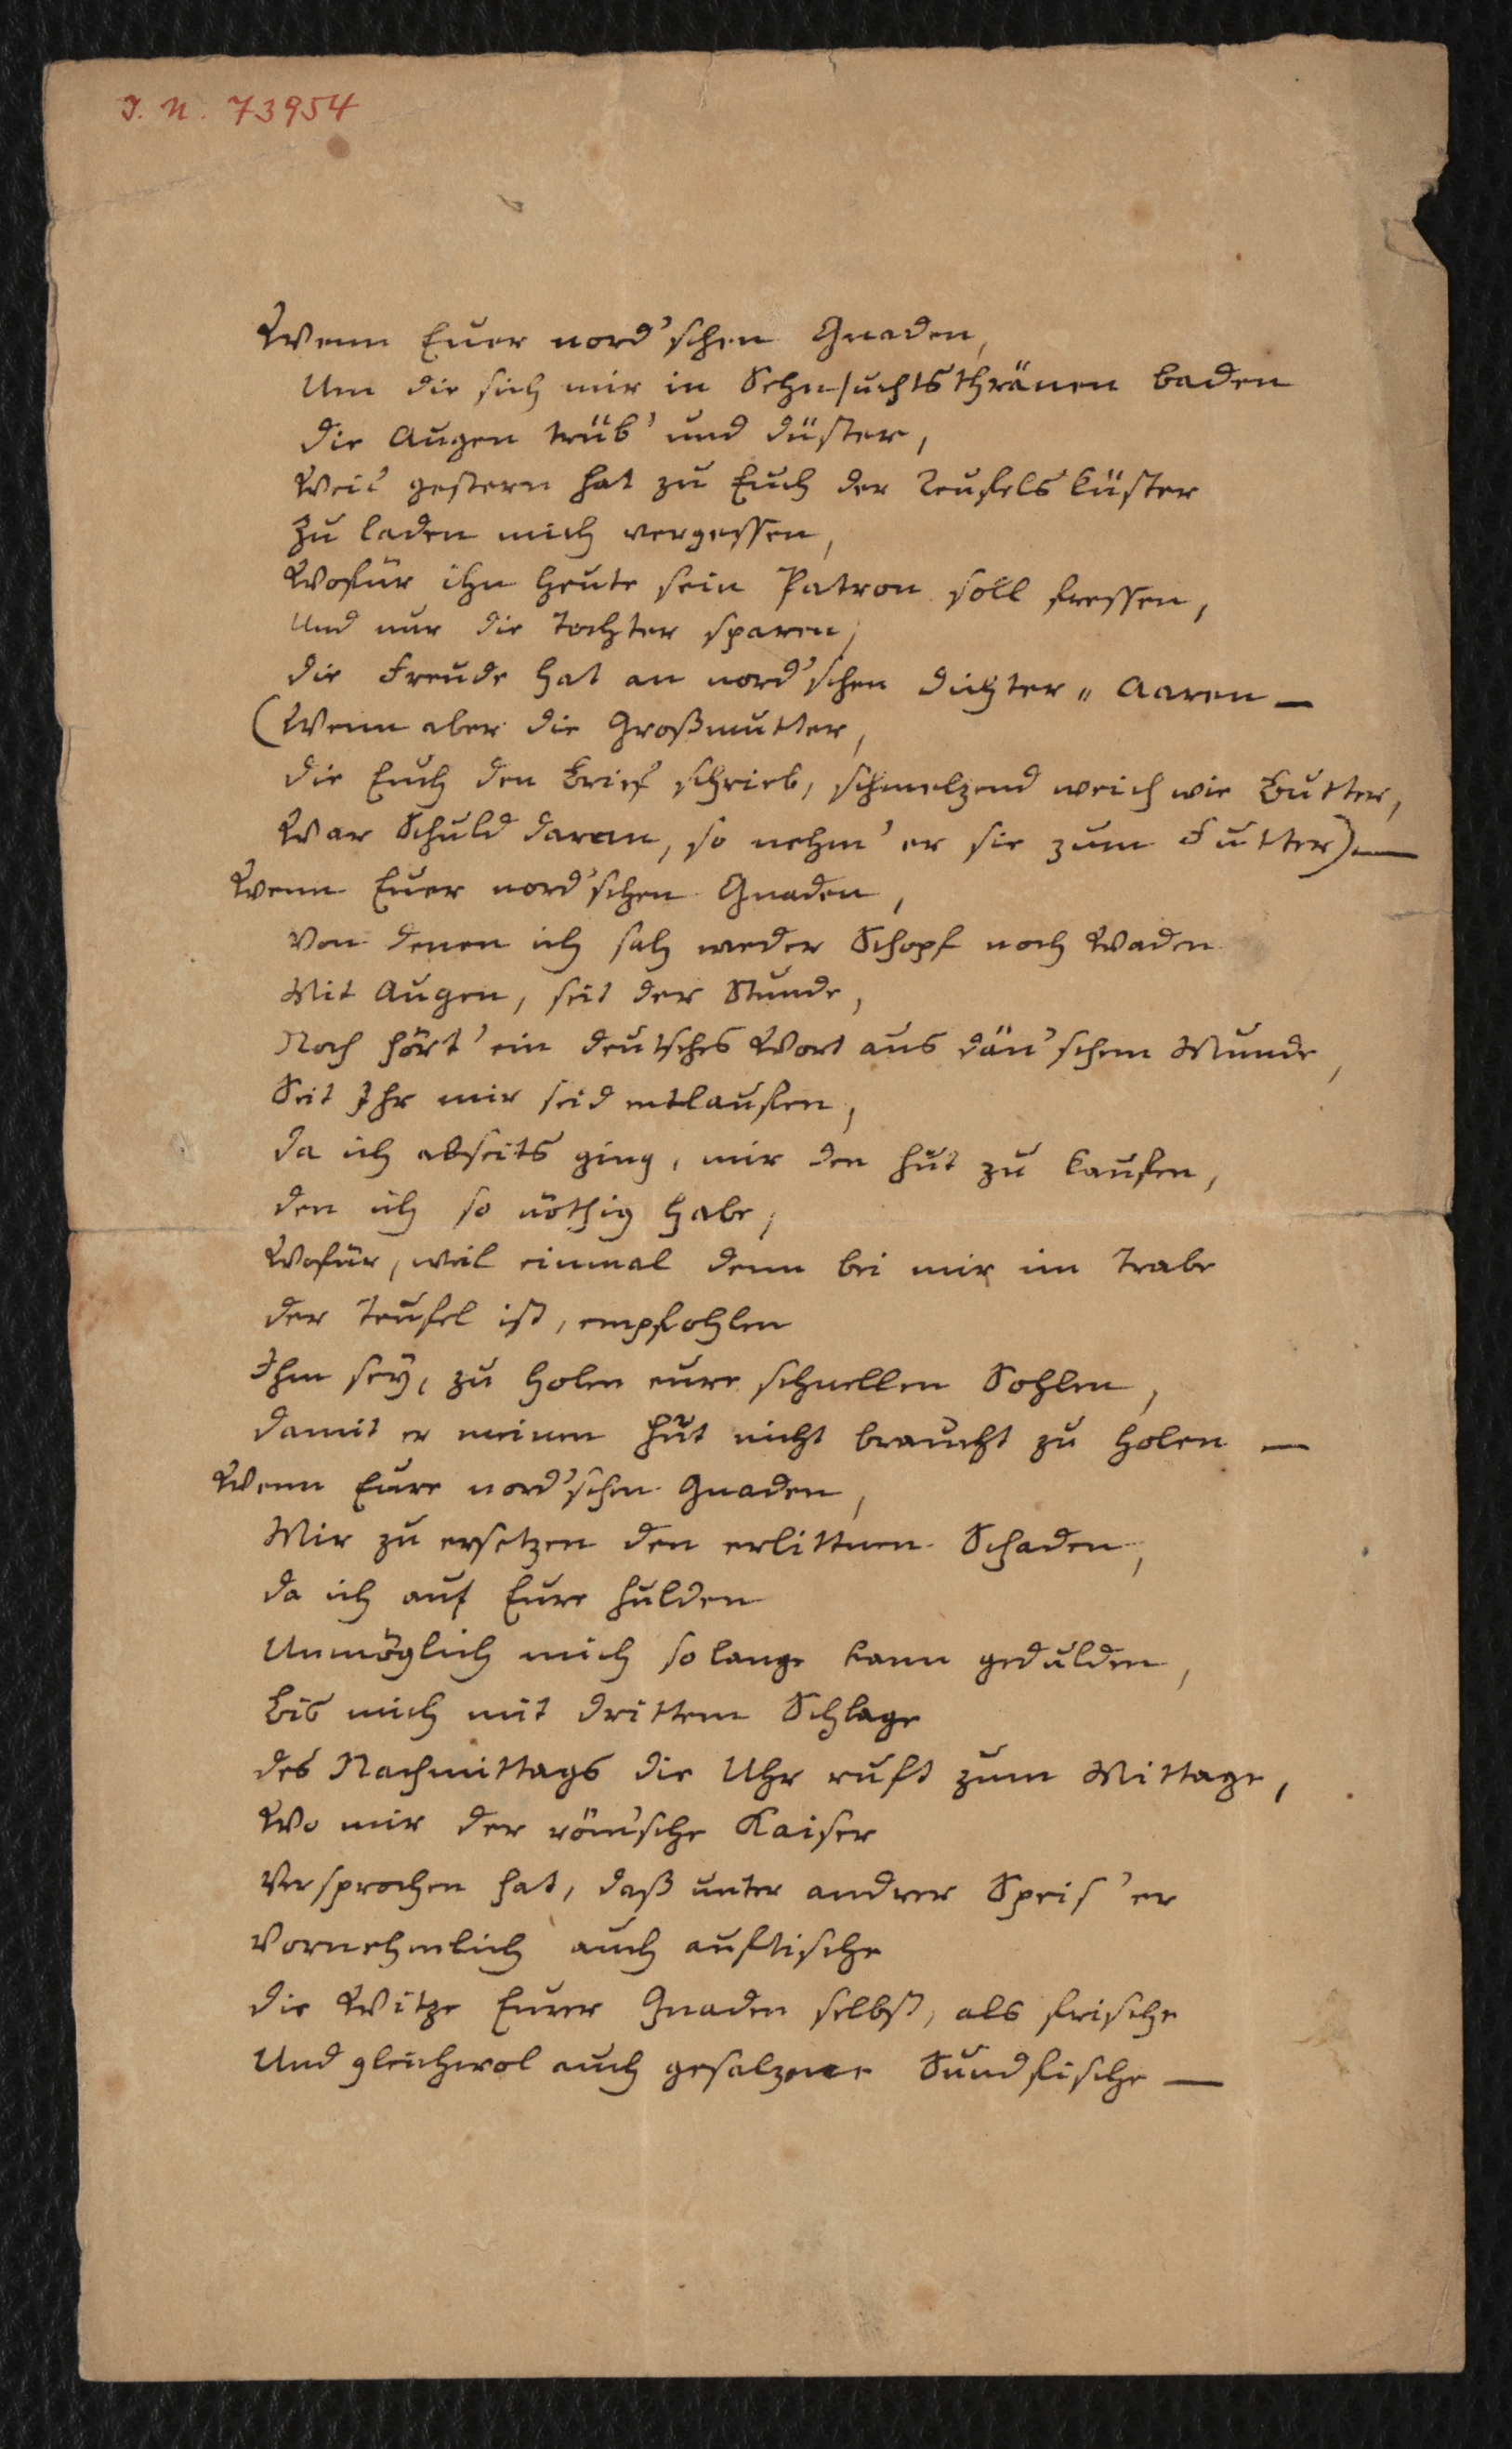 J. N. 73954
Wenn Euer nord'schen Gnaden,
Um die sich mir in Sehnsuchtsthränen baden
Die Augen trüb' und düster,
Weil gestern hat zu Euch der Teufelsküster
Zu laden mich vergessen,
Wofür ihn heute sein Patron soll fressen,
Und nur die Tochter sparen,
Die Freude hat an nord'schen Dichter-Aaren —
(Wenn aber die Großmutter,
Die Euch den Brief schrieb, schmelzend weich wie Butter,
War Schuld daran, so nehm' er sie zum Futter) —
Wenn Euer nord'schen Gnaden,
Von denen ich sah weder Schopf noch Waden
Mit Augen, seit der Stunde,
Noch hört' ein deutsches Wort aus dän'schem Munde,
Seit Ihr mir seid entlaufen,
Da ich abseits ging, mir den Hut zu kaufen,
Den ich so nöthig habe,
Wofür, weil einmal denn bei mir im Trabe
Der Teufel ist, empfohlen
Ihm sey, zu holen eure schnellen Sohlen,
Damit er meinen Hut nicht braucht zu holen —
Wenn Eure nord'schen Gnaden,
Mir zu ersetzen den erlittnen Schaden,
Da ich auf Eure Hulden
Unmöglich mich so lange kann gedulden,
Bis mich mit drittem Schlage
Des Nachmittags die Uhr ruft zum Mittage,
Wo mir der röm'sche Kaiser
Versprochen hat, daß unter andrer Speis' er
Vornehmlich auch auftische
Die Witze Eurer Gnaden selbst, als frische
Und gleichwol auch gesalzene Sundfische —